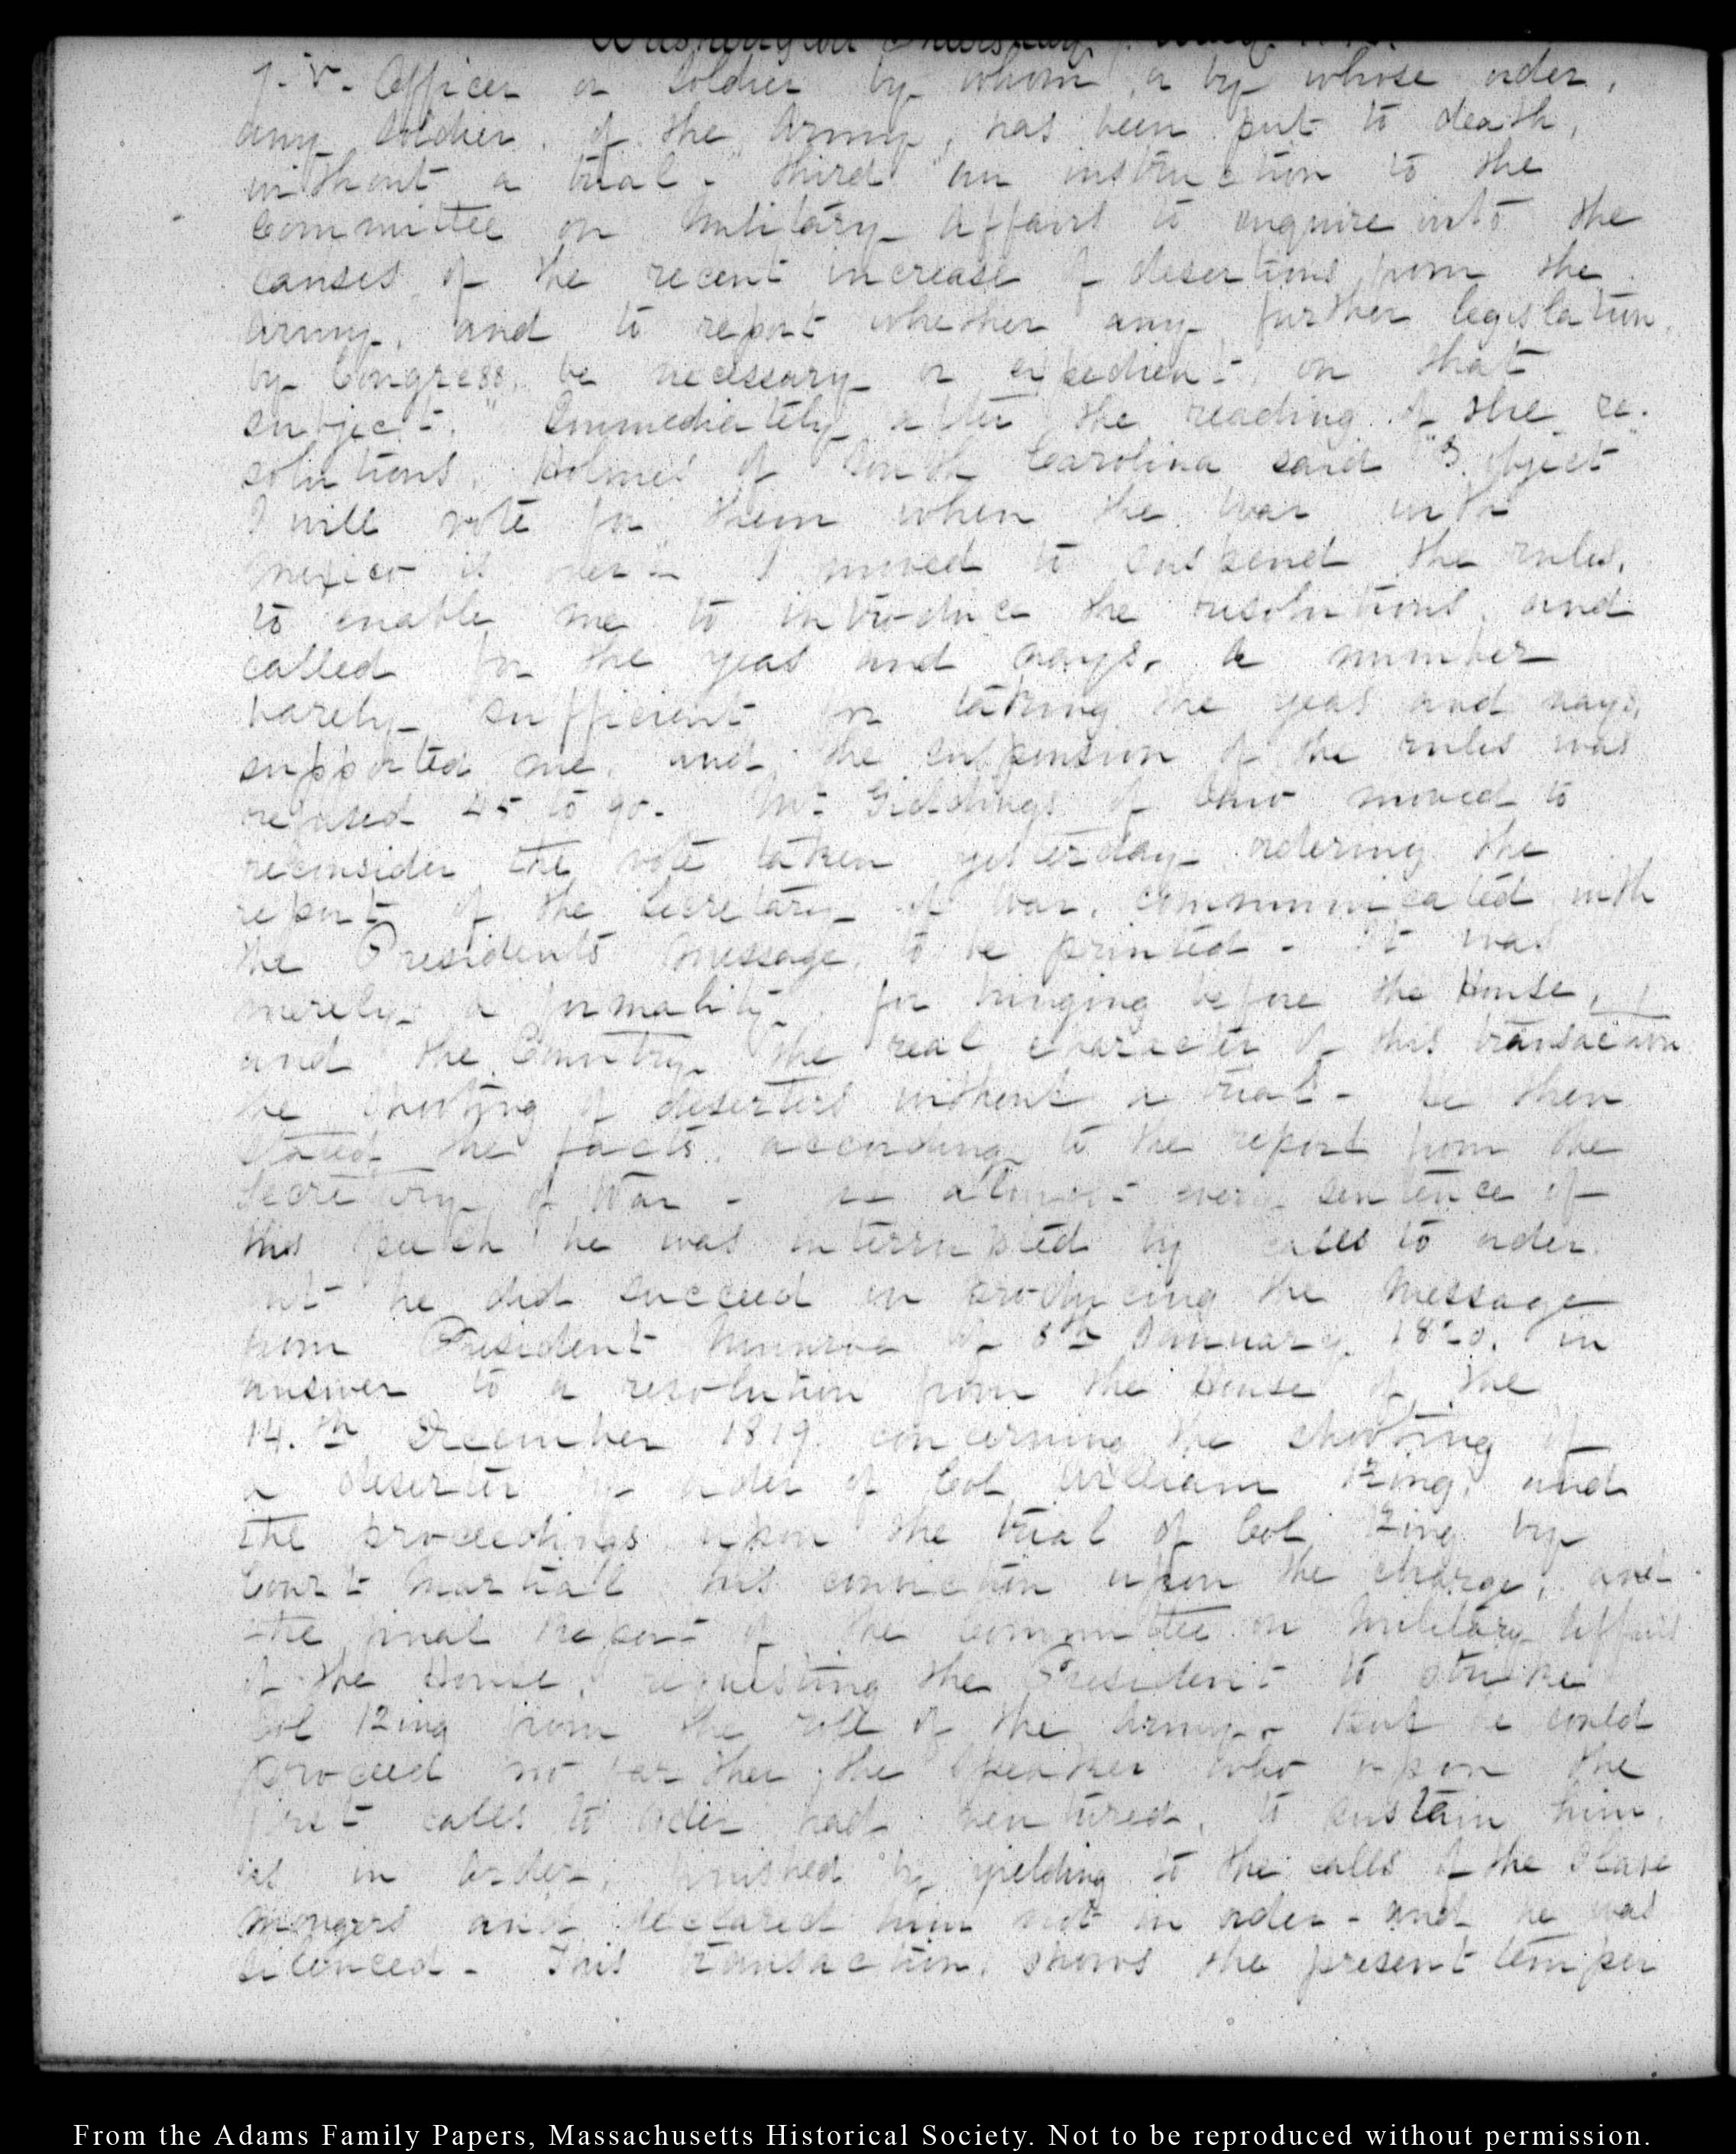 Washington Thursday
7. V. Officer or Soldier by whom, or by whose order,
any Soldier, of the Army, has been put to death,
without a trial - third "an instruction to the
Committee on Military Affairs to enquire into the
causes of the recent increase of desertions from the
Army, and to report whether any further legislation,
by Congress, be necessary or expedient, on that
subject." Immediately after the reading of the re-
solutions, Holmes of South Carolina said "I object
I will vote for them when the War with
Mexico is over" - I moved to suspend the rules,
to enable me to introduce the resolutions, and
called for the yeas and nays. A number
barely sufficient for taking the yeas and nays,
supported me, and the suspension of the rules was
refused 45 to 90. Mr Giddings of Ohio moved to
reconsider the vote taken yesterday ordering the
report of the Secretary of War, communicated with
the Presidents message, to be printed - It was
merely a formality for bringing before the House,
and the Country the real character of this transaction
the shooting of deserters without a trial - He then
stated the facts, according to the report from the
Secretary of War - at almost every sentence of
this speech he was interrupted by calls to order
but he did succeed in producing the Message
from President Monroe of 5th January 1820. in
answer to a resolution from the House of the
14.th December 1819. concerning the shooting of
a deserter by order of Col William King, and
the proceedings upon the trial of Col King by
Court Martial his conviction upon the charge, and
the final Report of the Committee on Military Affairs
of the House, requesting the President to strike
Col King from the roll of the Army. But he could
proceed no farther, the Speaker who upon the
first calls to order had ventured, to sustain him,
as in order, finished by yielding to the calls of the Slave
mongers and declared him not in order - and he was
silenced - This transaction, shows the present temper
From the Adams Family Papers, Massachusetts Historical Society. Not to be reproduced without permission.